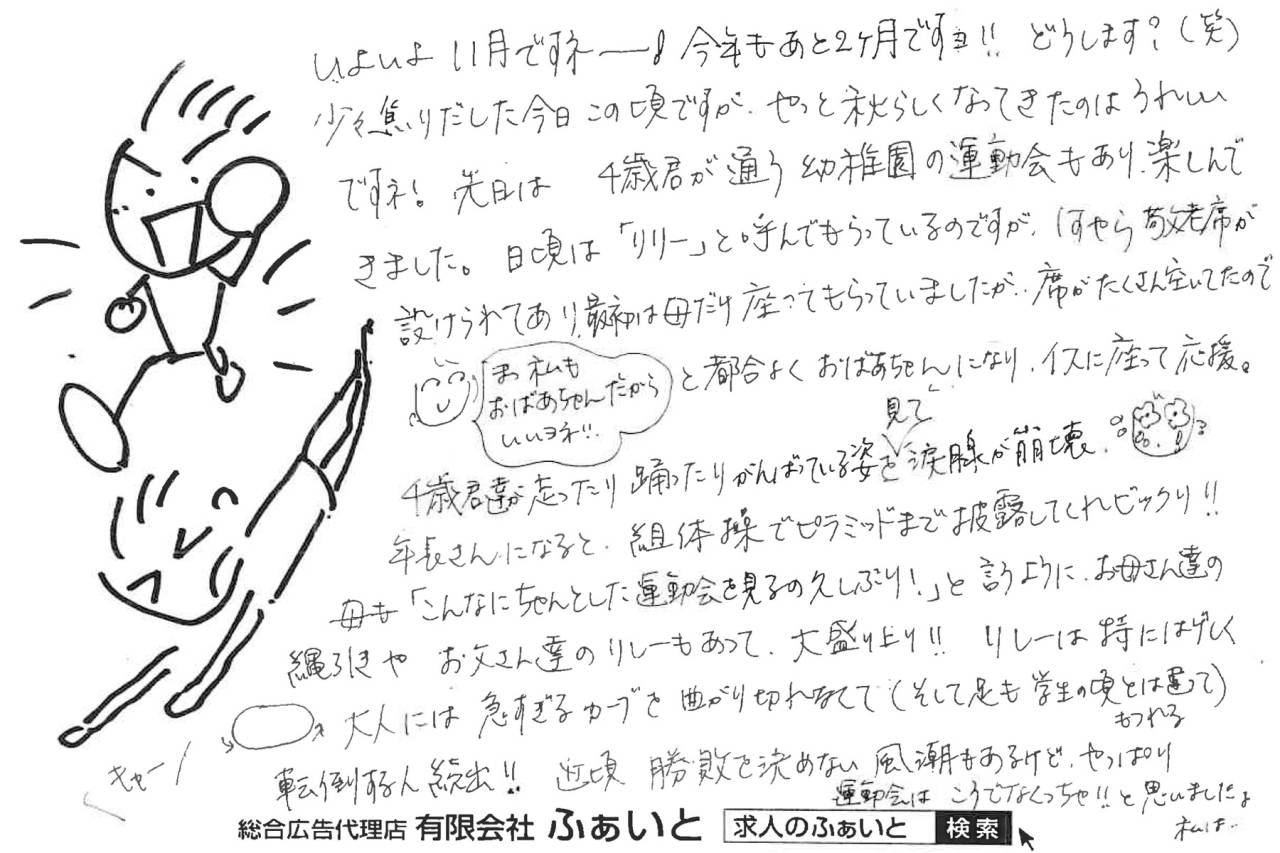 いよいよ11月ですネー! 今年もあと2ヶ月ですョ!! どうします?(笑)
少々焦りだした今日この頃ですが、やっと秋らしくなってきたのはうれしい
ですネ! 先日は 4歳君が通う幼稚園の運動会もあり、楽しんで
きました。日頃は「リリー」と呼んでもらっているのですが、 敬老席が
設けられてあり、最初は母だけ座ってもらっていましたが、席がたくさん空いてたので
まぁ私も
おばあちゃんだから
いいヨネ!!
と都合よくおばあちゃんになり、イスに座って応援。
4歳君達が走ったり踊ったりがんばっている姿を見て涙腺が崩壊。
年長さんになると、組体操でピラミッドまで披露してくれビックリ!!
母も「こんなにちゃんとした運動会を見るの久しぶり!」と言うように、お母さん達の
縄引きや お父さん達のリレーもあって、大盛り上り!! リレーは特にはげしく
大人には急すぎるカーブを曲がり切れなくて(そして足も学生の頃とは違って)
もつれる
キャー
転倒する人続出!! 近頃 勝敗を決めない風潮もあるけど、やっぱり
運動会は こうでなくっちゃ!!と思いましたよ
私は..
総合広告代理店 有限会社 ふぁいと 求人のふぁいと 検索